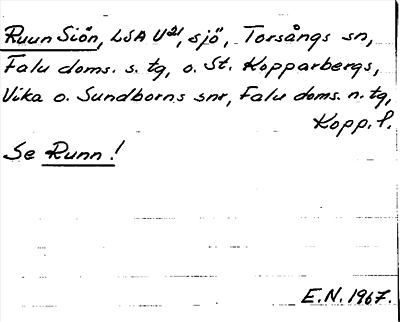 Ruun Siön, LSA U21, sjö, Torsångs sn,
Falu doms. s. tg, o. St. Kopparbergs,
Vika o. Sundborns snr, Falu doms. n. tg,
Kopp. l.
Se Runn!
E.N. 1967.